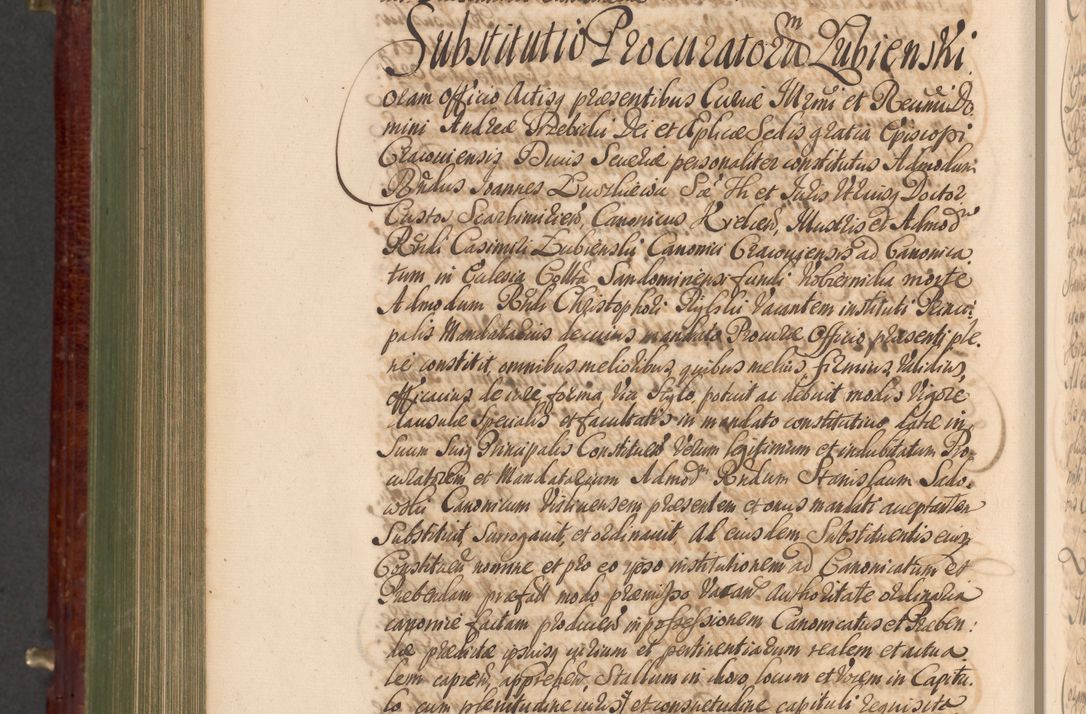 Substitutio Procuratoru͂m Lubienski
oram Officio Actisq præsentibus Curiæ Illrmi et Reumi Do
mini Andreæ Trzebicki Dei et Aplicæ Sedis gratia Episcopi
Cracouiensis Ducis Seueriæ personaliter constitutus Admodum
Rndus Joannes Sæ Th et Juris Utriusq Doctor
Custos Scarbimirien, Canonicus Kielcen, Illustris et Admod
Rndi Casimiri Lubienski Canonici Cracouiensis ad Canonica
tum in Ecclesia Collta Sandomiriensi fundi morte
Admodum Rndi Christophori Vacantem instituti Princi
palis Mandatarius de cuius mandato Procuræ Officio præsenti ple
ne constitit, omnibus melioribus, quibus melius, firmius, Validius,
efficacius de iure, forma, Via Stylo, potuit ac debuit modis Vigore
clausulæ Specialis et facultatis in mandato constitutivo latæ in
Suum Suiq Principalis Constituen Verum legitimum et indubitatum Pro
curatorem et Mandatarium Admodm Rndum Stanislaum Sado
wski Canonicum præsentem et onus mandati acceptantem
Substituit, Surrogauit, et ordinauit. Ad eiusdem Substituentis eiusq
Constituen nomine et pro eo ipso institutionem ad Canonicatum et
Præbendam præfat modo præmisso Vacan Authoritate ordinaria
canonice factam producen in possessionem Canonicatus et Præben:
dæ prædictæ ipsiusq iurium et pertinentiarum realem et actua
lem capien, apprehen, Stallum in choro, locum et Vocem in Capitu
lo cum plenitudine iuris et consuetudine capituli requisita